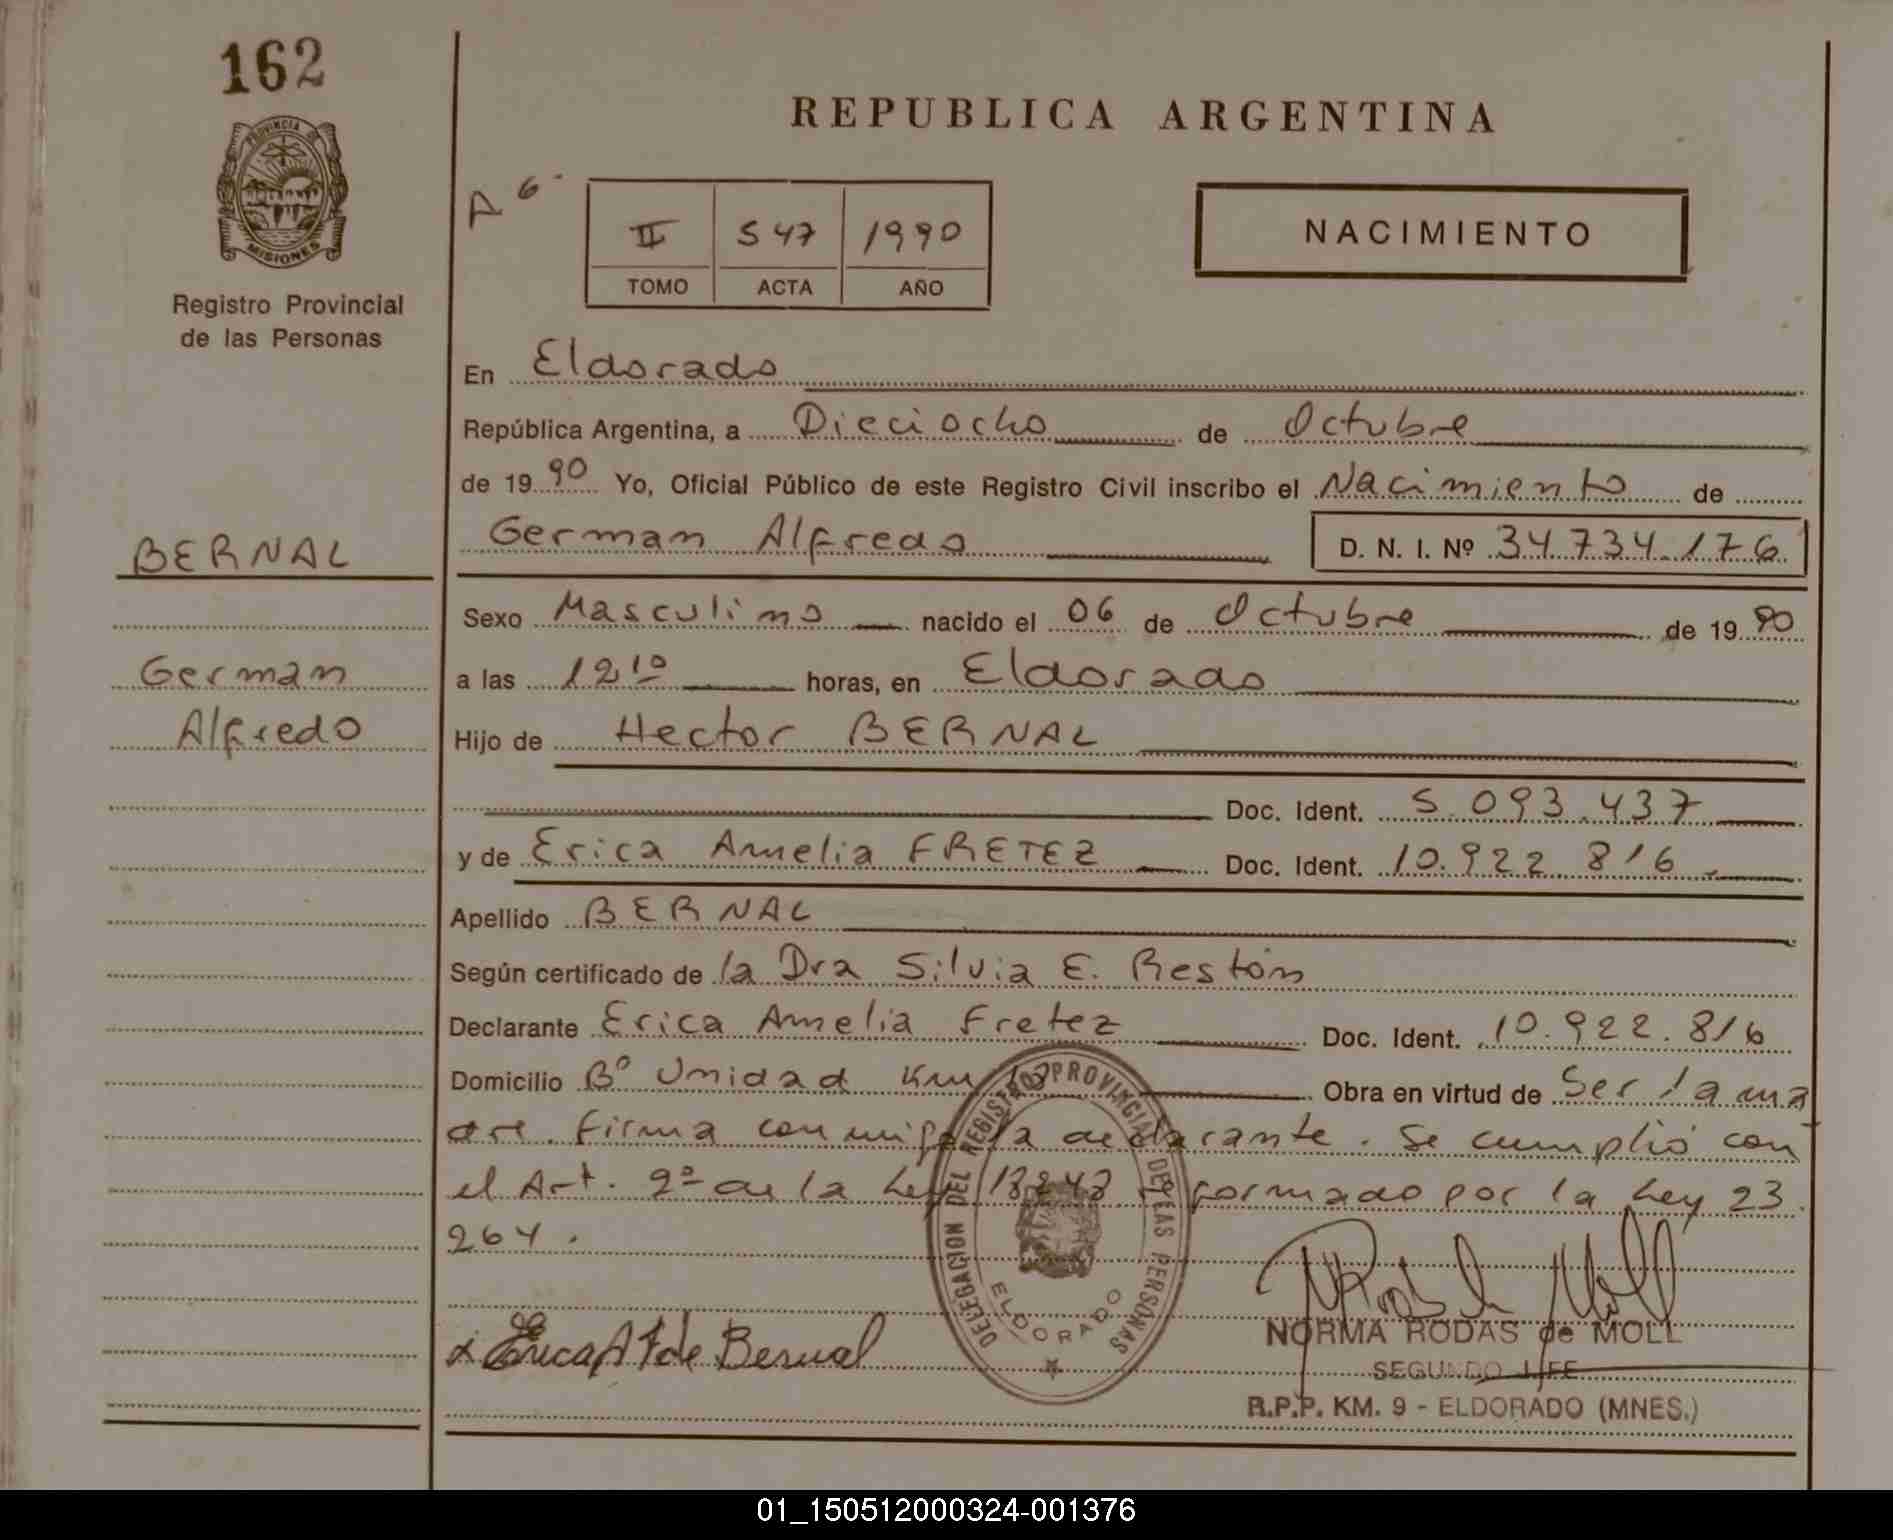 162
PROVINCIA DE
MISIONES
Registro Provincial
de las Personas
REPUBLICA ARGENTINA
II 547 1990
TOMO ACTA AÑO
NACIMIENTO
En Eldorado
República Argentina, a Dieciocho de Octubre
de 1990 Yo, Oficial Público de este Registro Civil inscribo el Nacimiento de
BERNAL
German Alfredo D. N. I. Nº 34.734.176
Sexo Masculino nacido el 06 de Octubre de 1990
German
a las 12 10 horas, en Eldorado
Alfredo
Hijo de Hector BERNAL
Doc. Ident. 5.093.437
y de Erica Amelia FRETEZ Doc. Ident. 10.922.816
Apellido BERNAL
Según certificado de la Dra Silvia E. Restón
Declarante Erica Amelia Fretez Doc. Ident. 10.922.816
Domicilio Bº Unidad Km Obra en virtud de Ser la ma
dre. Firma conmigo la declarante. Se cumplió con
el Art. 2º de la Ley reformado por la Ley 23.
264.
DELEGACION DEL REGISTRO PROVINCIAL DE LAS PERSONAS
ELDORADO
x Erica A F de Bernal
NORMA RODAS de MOLL
SEGUNDO JEFE
R.P.P. KM. 9 - ELDORADO (MNES.)
01_150512000324-001376